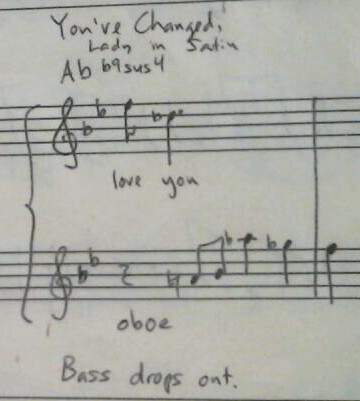 You've Changed,
Lady in Satin
Ab b9sus4
love you
oboe
Bass drops out.